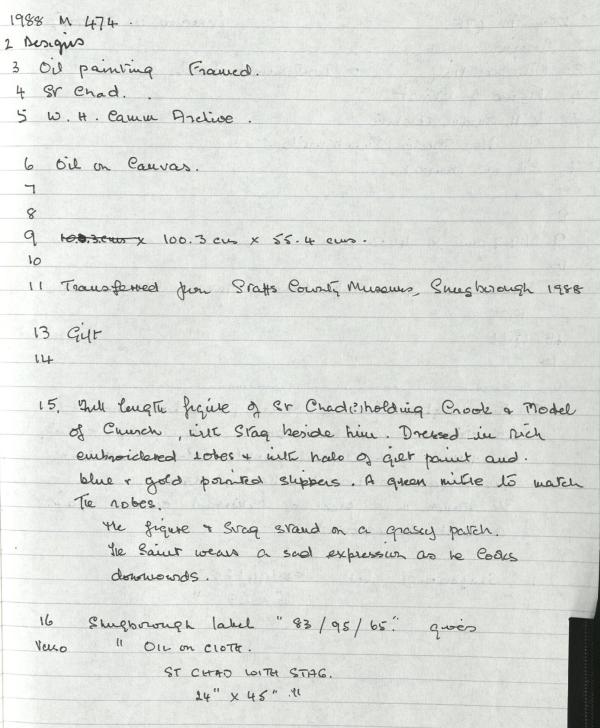 1988 M 474.
2 Designs
3 Oil painting Framed.
4 St Chad.
5 W. H. Camm Archive.
6 Oil on Canvas.
7
8
9 100.3 cms x 100.3 cms x 55.4 cms.
10
11 Transferred from Staffs County Museum, Shugborough 1988
13 Gift
14
15. Full length figure of St Chad; holding Crook & Model
of Church, with Stag beside him. Dressed in rich
embroidered robes & with halo of gilt paint and
blue & gold pointed slippers. A green mitre to match
the robes.
The figure & Stag stand on a grassy patch.
The Saint wears a sad expression as he looks
downwards.
16 Shugborough label "83/95/65." gives
Verso " OIL on CLOTH.
ST CHAD WITH STAG.
24" x 45" ."